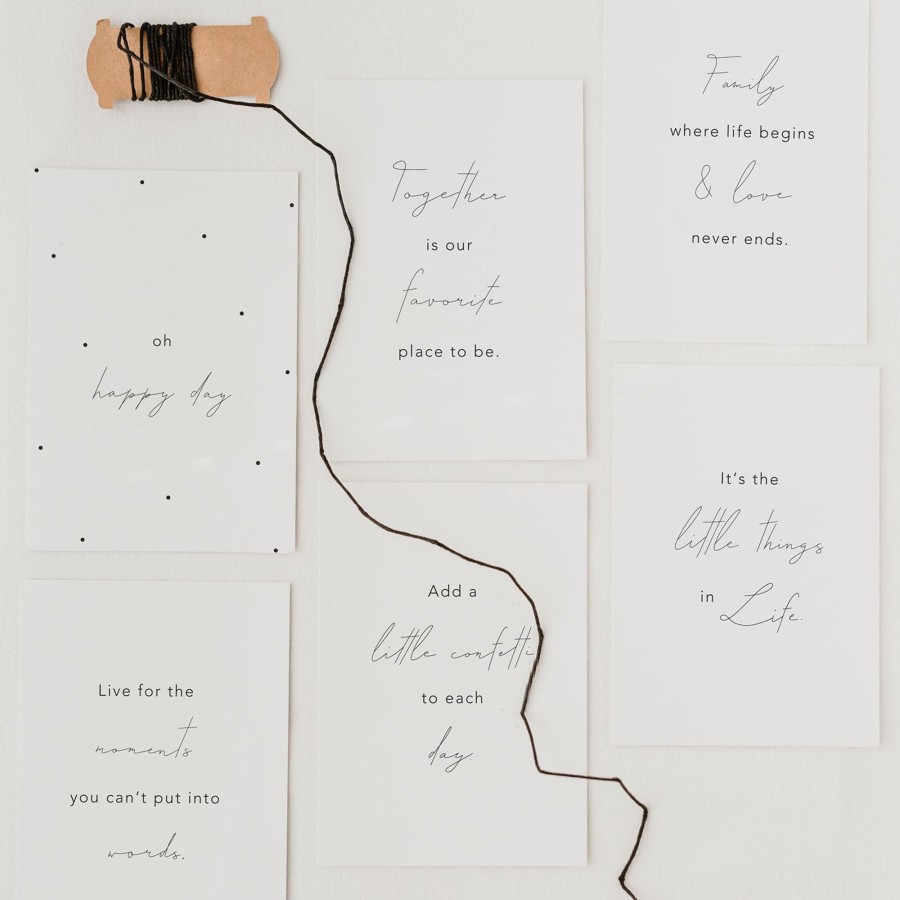 Family
where life begins
& love
never ends.
Together
is our
favorite
place to be.
oh
happy day
It's the
little things
in Life.
Add a
little confetti
to each
day.
Live for the
moments
you can't put into
words.